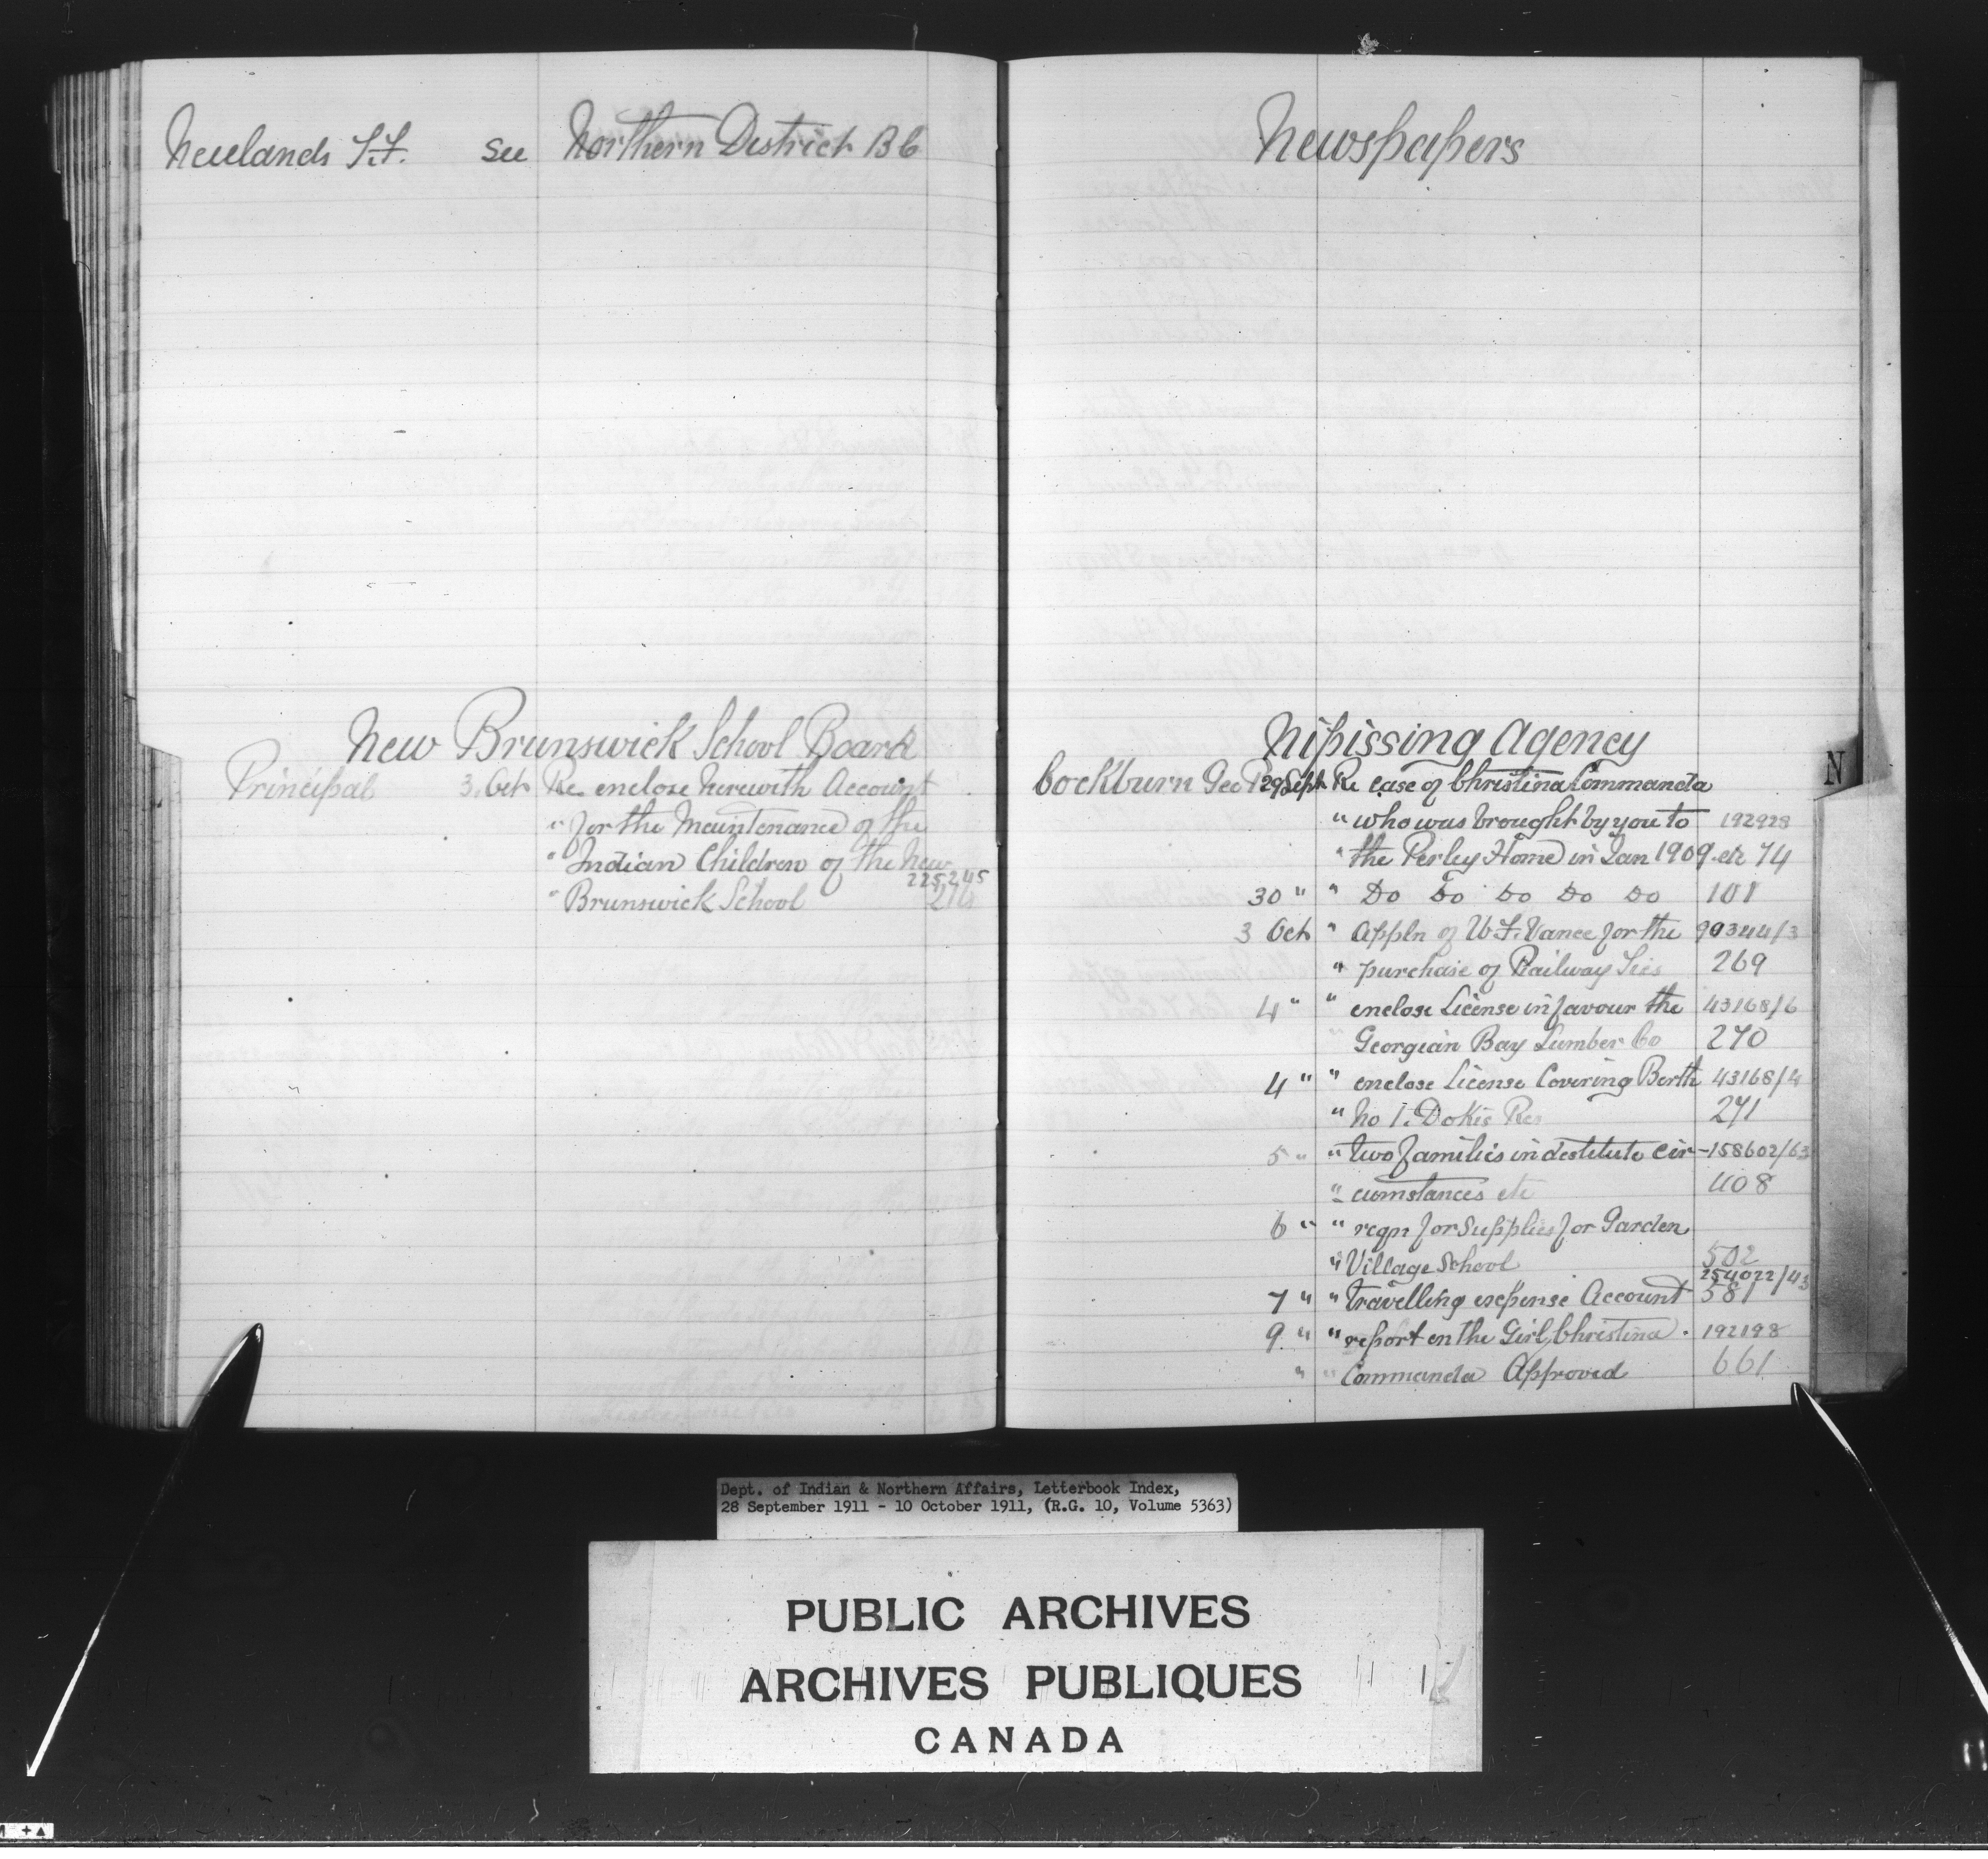 Neulands S.F. See Northern District B6
New Brunswick School Board
Principal 3. Oct Re enclose herewith Account
" for the Maintenance of the
" Indian Children of the New
225,245
" Brunswick School
Newspapers
Nipissing Agency
N
Cockburn Geo P 29 Sept Re case of Christina Commanda
" who was brought by you to 192923
" the Perley Home in Jan 1909 etc 74
30 " " Do Do Do Do Do 101
3 Oct " Appln of W.F. Vance for the 99344/3
" purchase of Railway Ties 269
4 " " enclose License in favour the 43168/6
" Georgian Bay Lumber Co 270
4 " " enclose License Covering Berth 43168/4
" No 1. Dokis Res 271
5 " " two families in destitute cir- 158602/63
" cumstances etc 408
6 " " reqn for Supplies for Garden
" Village School 502
254022/43
7 " " travelling expense Account 581
9 " " report on the Girl Christina . 192198
" " Commanda Approved 661
Dept. of Indian & Northern Affairs, Letterbook Index,
28 September 1911 - 10 October 1911, (R.G. 10, Volume 5363)
PUBLIC ARCHIVES
ARCHIVES PUBLIQUES
CANADA